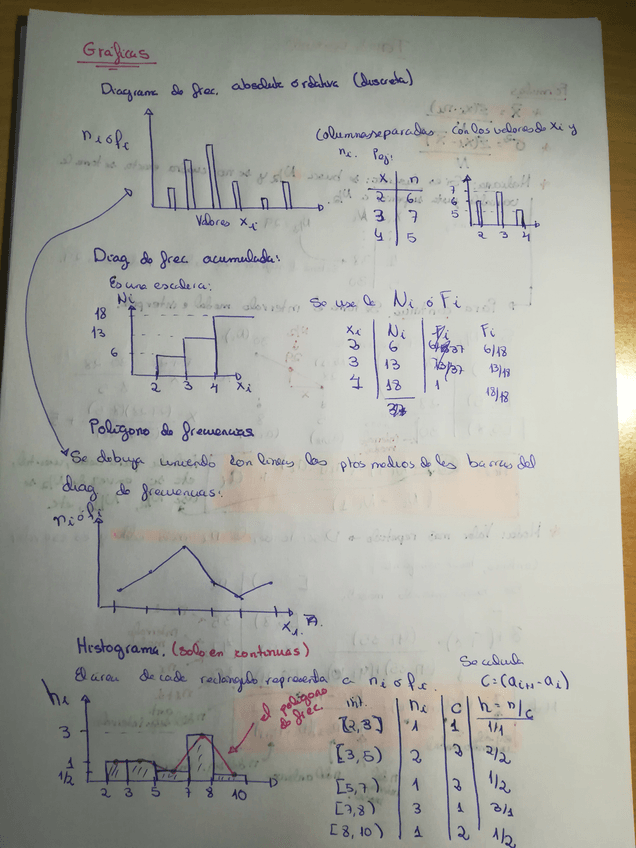 Gráficas
Diagrama de frec. absoluta o relativa (discreta)
ni ó fi
Valores xi
Columnas separadas con los valores de xi y
ni. Pej:
x n
2 6
3 7
4 5
7
6
5
2 3 4
Diag de frec acumulada:
Es una escalera:
Ni
18
13
6
2 3 4 xi
Se usa la Ni ó Fi
xi Ni Fi Fi
2 6 6/18
3 13 13/18
4 18 1 18/18
37
Polígono de frecuencias
Se dibuja uniendo con líneas los ptos medios de las barras del
diag de frecuencias:
ni ó fi
xi
Histograma. (solo en continuas)
El area de cada rectángulo representa a ni o fi.
Se calcula
C=(ai+1-ai)
hi
3
1
1/2
2 3 5 7 8 10
el polígono
de frec
int. ni C h=n/c
[2,3) 1 1 1/1
[3,5) 2 2 2/2
[5,7) 1 2 1/2
[7,8) 3 1 3/1
[8,10) 1 2 1/2